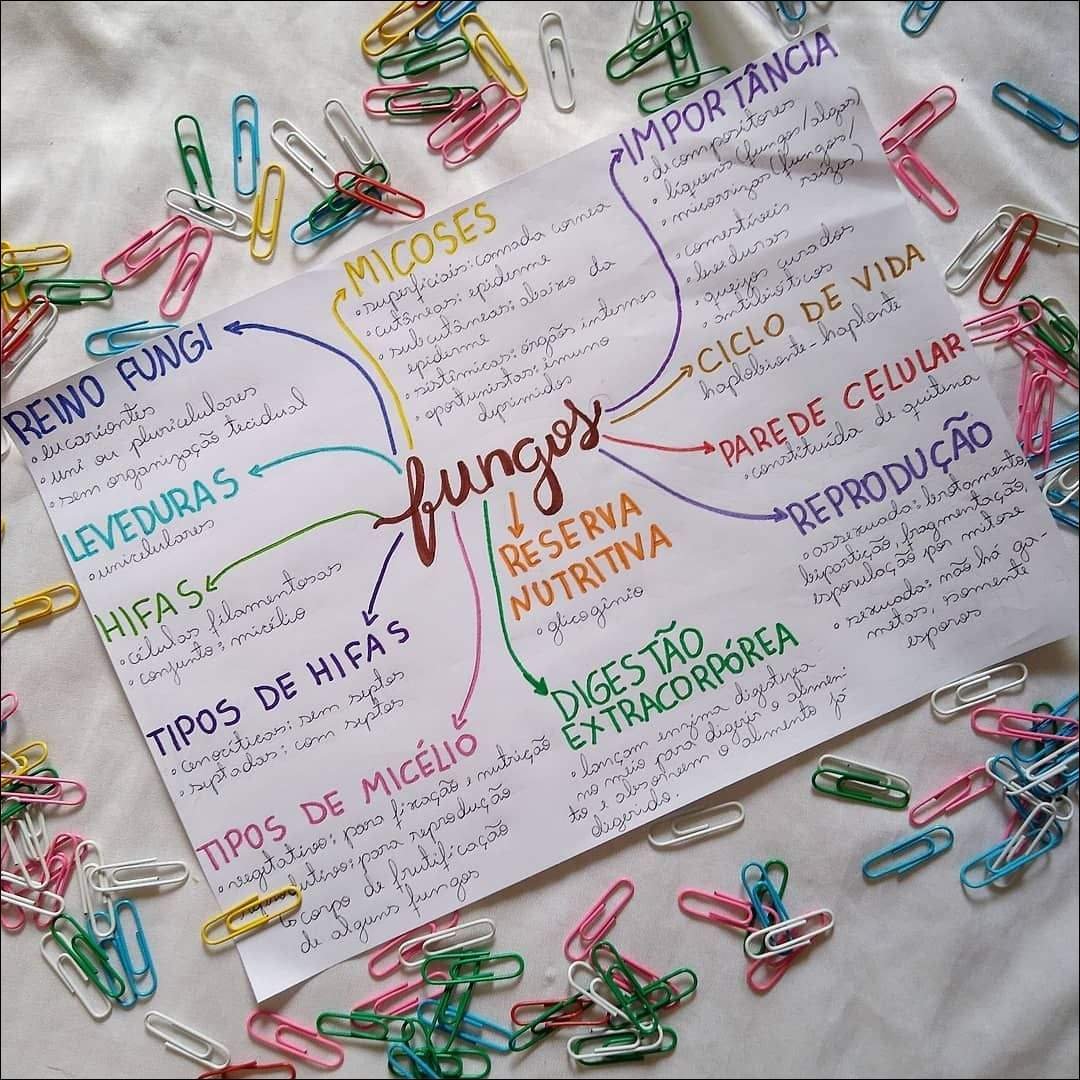 fungos
REINO FUNGI
• eucariontes
• uni ou pluricelulares
• sem organização tecidual
LEVEDURAS
• unicelulares
HIFAS
• células filamentosas
• conjunto: micélio
TIPOS DE HIFAS
• cenocíticas: sem septos
• septadas: com septos
TIPOS DE MICÉLIO
• vegetativo: para fixação e nutrição
para reprodução
corpo de frutificação
de alguns fungos
MICOSES
• superficiais: camada córnea
• cutâneas: epiderme
• subcutâneas: abaixo da
epiderme
• sistêmicas: órgãos internos
• oportunistas: imuno
diprimidos
RESERVA
NUTRITIVA
• glicogênio
DIGESTÃO
EXTRACORPÓREA
• lançam enzima digestiva
no meio para digerir o alimen-
to e absorvem o alimento já
digerido.
IMPORTÂNCIA
• decompositores
• líquens (fungos/algas)
• micorrizas (fungos/
raízes)
• comestíveis
• leveduras
• queijos curados
• antibióticos
CICLO DE VIDA
haplobionte-haplonte
PAREDE CELULAR
• constituída de quitina
REPRODUÇÃO
• assexuada: brotamento,
bipartição, fragmentação,
esporulação por mitose
• sexuada: não há ga-
metas, somente
esporos